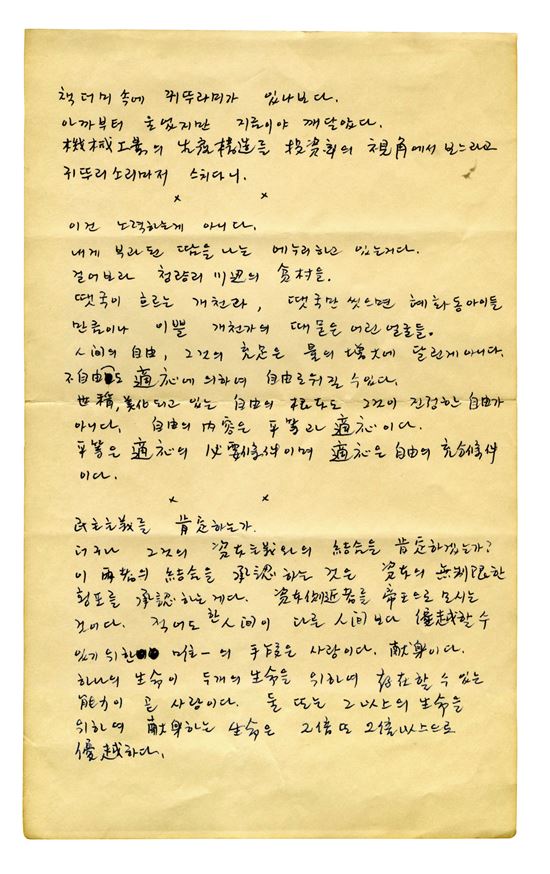 책더미 속에 귀뚜라미가 있나보다.
아까부터 울었지만 지금이야 깨달았다.
機械工業의 生産構造를 投資家의 視角에서 보느라고
귀뚜리소리마저 스치다니.
× ×
이건 노력하는게 아니다.
내게 부과된 땀을 나는 에누리하고 있는거다.
걸어보라 청량리 川辺의 貧村을.
땟국이 흐르는 개천과, 땟국만 씻으면 혜화동아이들
만큼이나 이쁠 개천가의 때묻은 어린 얼굴들.
人間의 自由, 그것의 充足은 量의 增大에 달린게 아니다.
不自由도 適応에 의하여 自由로워질 수 있다.
美化되고 있는 自由의 根本도 그것이 진정한 自由가
아니다. 自由의 內容은 平等과 適応이다.
平等은 適応의 必要條件이며 適応은 自由의 充分條件
이다.
× ×
民主主義를 肯定하는가.
더구나 그것의 資本主義와의 結合을 肯定하겠는가?
이 両者의 結合을 承認하는 것은 資本의 無制限한
횡포를 承認하는게다. 資本側近者를 帝王으로 모시는
것이다. 적어도 한 人間이 다른 人間보다 優越할 수
있기 위한 唯一의 手段은 사랑이다. 献身이다.
하나의 生命이 두개의 生命을 위하여 存在할 수 있는
能力이 곧 사랑이다. 둘 또는 2 以上의 生命을
위하여 献身하는 生命은 2倍 또 2倍以上으로
優越하다.